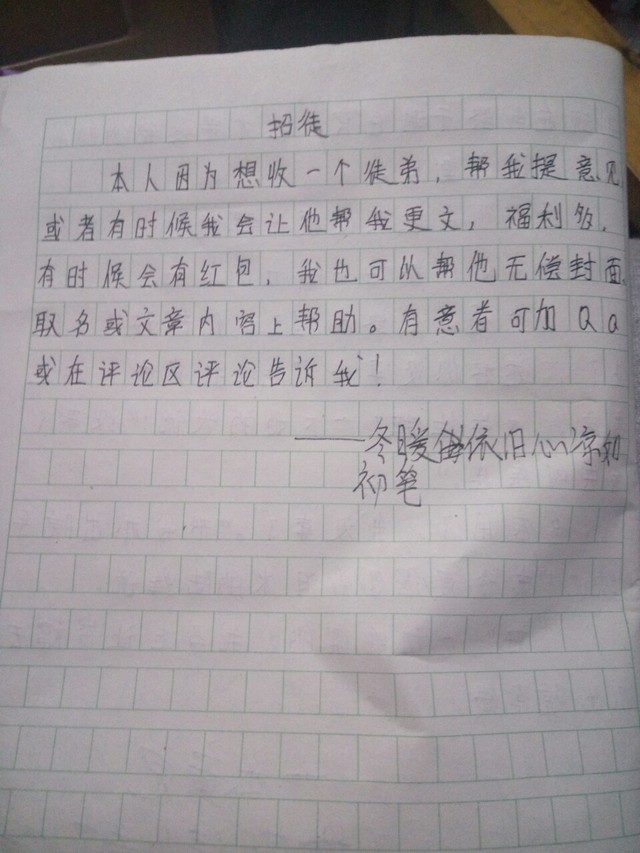 招徒
本人因为想收一个徒弟，帮我提意见，
或者有时候我会让他帮我更文，福利多，
有时候会有红包，我也可以帮他无偿封面、
取名或文章内容上帮助。有意者可加QQ
或在评论区评论告诉我！
——冬暖依旧心凉如
初笔